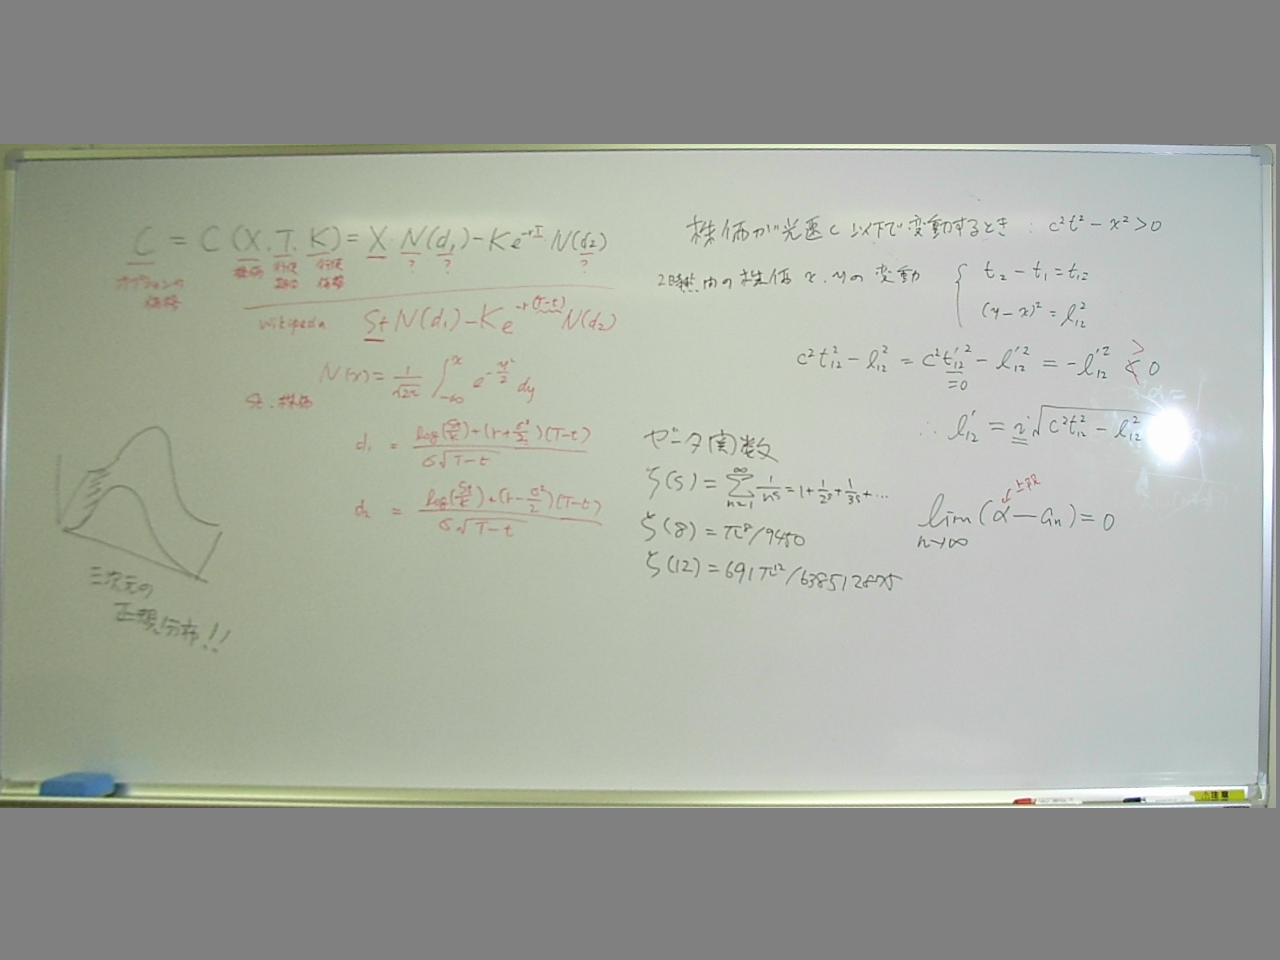 C = C(X.T.K) = X N(d₁) - Ke⁻ʳᵀ N(d₂)
オプションの
価格
株価 行使
期日 行使
価格
? ? ?
wikipedia St N(d₁) - Ke^-r(T-t) N(d₂)
N(x) = 1/√2π ∫_-∞^x e^-y²/2 dy
St.株価
d₁ = log(St/K)+(r+σ²/2)(T-t) / σ√T-t
d₂ = log(St/K)+(r-σ²/2)(T-t) / σ√T-t
三次元の
正規分布!!
株価が光速c以下で変動するとき : c²t² - x² > 0
2時点内の株価x.yの変動 { t₂ - t₁ = t₁₂
(y-x)² = l₁₂²
c²t₁₂² - l₁₂² = c²t'₁₂² - l'₁₂² = -l'₁₂² < 0
=0
>
∴ l'₁₂ = i√c²t₁₂² - l₁₂²
ゼータ関数
ζ(s) = ∑_n=1^∞ 1/n^s = 1 + 1/2^s + 1/3^s + …
ζ(8) = π⁸/9450
ζ(12) = 691π¹²/638512875
上限
lim_n→∞ (α - aₙ) = 0
注意